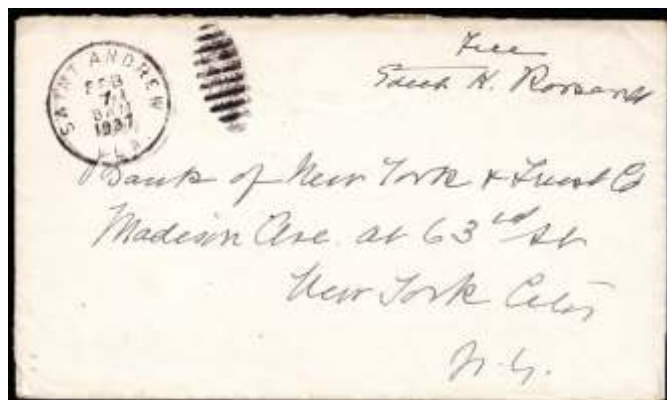 SAINT ANDREW
FEB
7
1937
FLA.
Free
Edith K. Roosevelt
Bank of New York & Trust Co
Madison Ave. at 63rd St
New York City
N.Y.